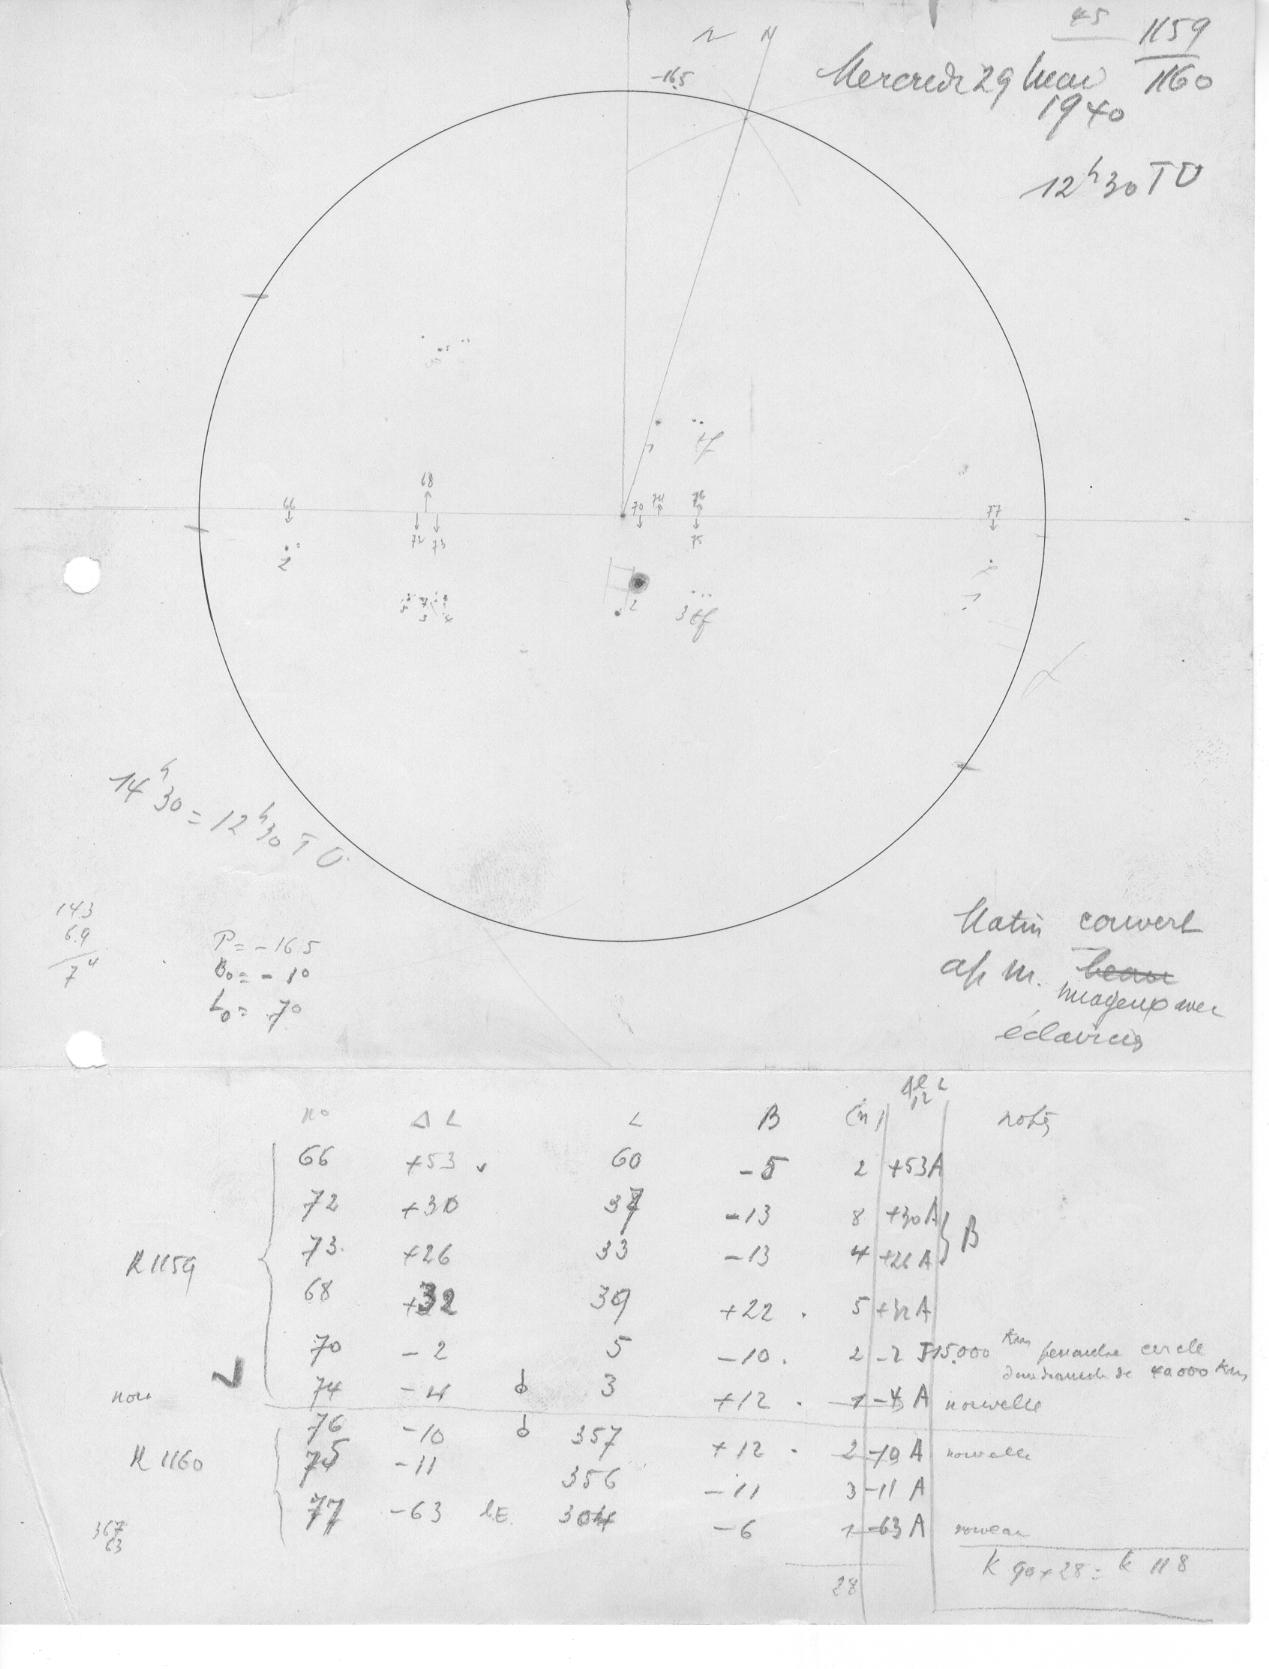 45
1159
1160
N
-16.5
Mercredi 29 Mai
1940
12h30 TU
1
tf
68
66
70 74 76
77
72 73
75
2
2
3 tf
1
3 4
14h30 = 12h30 TU
143
6.9
P = -16.5
B0 = -10
L0 = 70
Matin couvert
ap m. beau
nuageux avec
éclaircies
no ΔL L B (n) notes
66 +53 60 -5 2 +53 A
72 +30 37 -13 8 +30 A
B
73 +26 33 -13 4 +26 A
R 1159
68 +32 39 +22 5 +32 A
70 -2 5 -10 2 -2 J 15.000 Km cercle
de 40 000 Km
nouv 74 -4 3 +12 1 -4 A nouvelle
76 -10 357 +12 2 -10 A nouvelle
R 1160
75 -11 356 -11 3 -11 A
77 -63 l.E. 304 -6 1 -63 A nouveau
367
63
28
k 90+28 = k 118